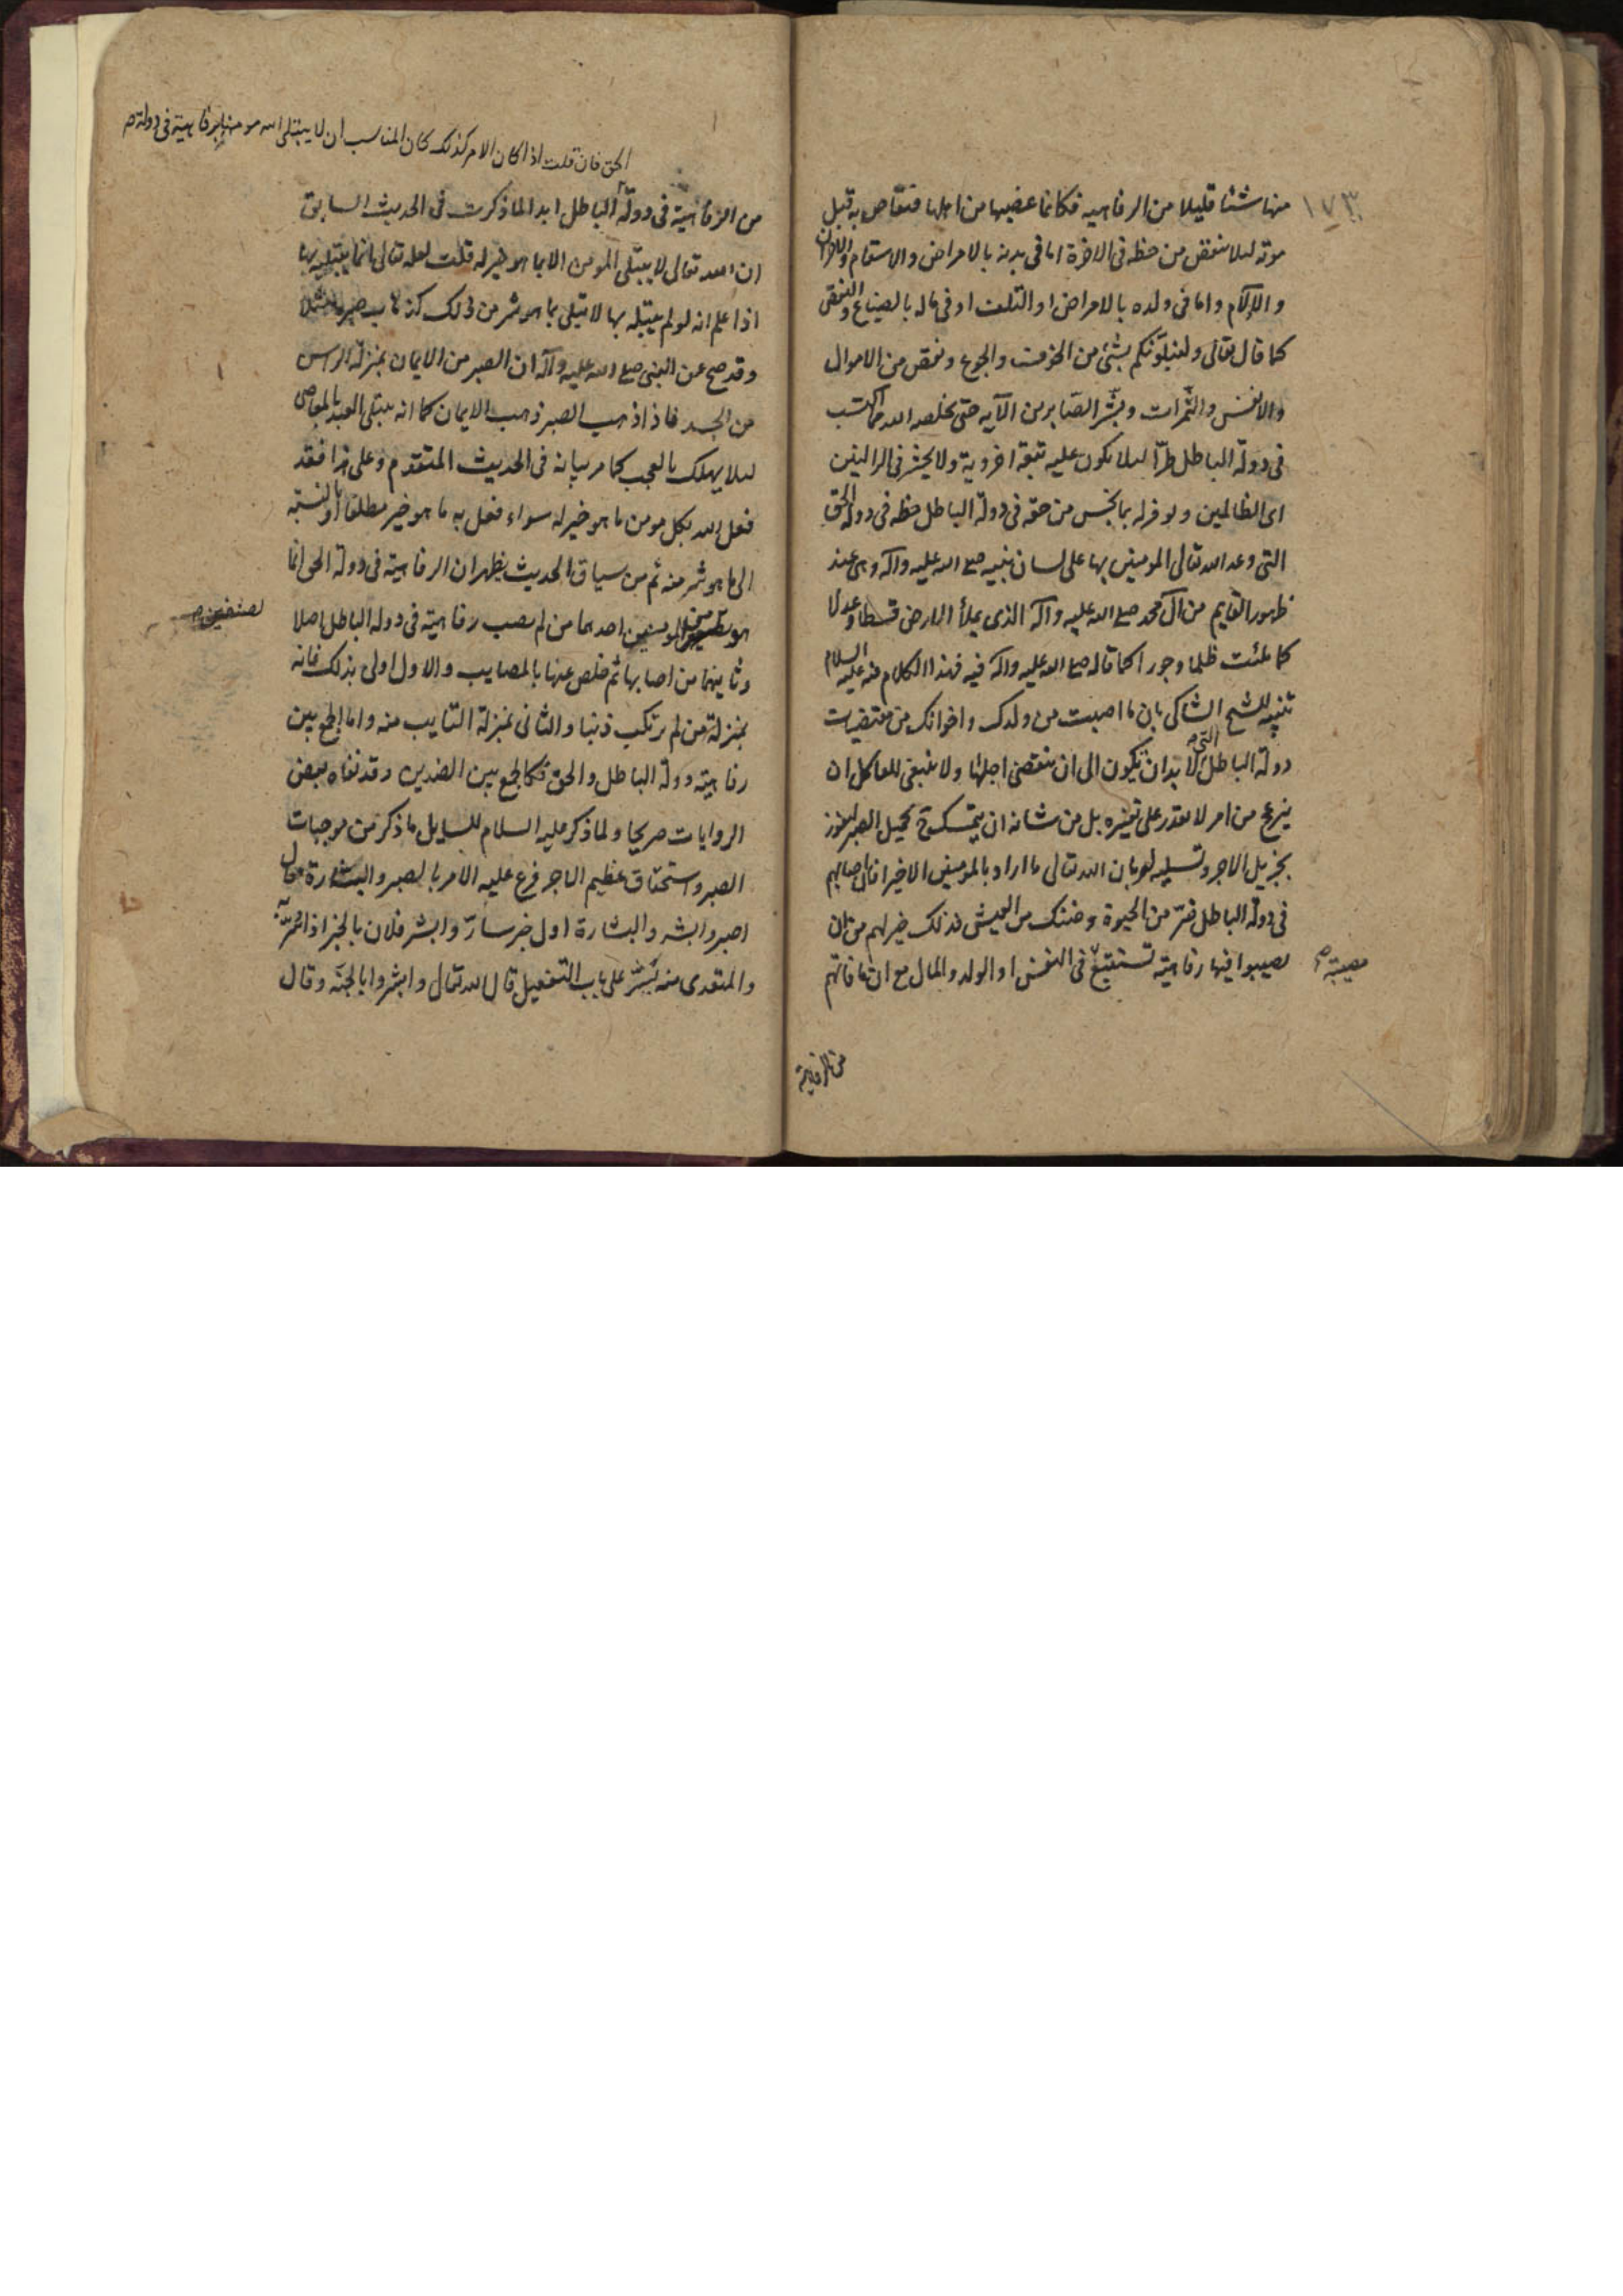 ١٧٣
منها شيئا قليلا من الرفاهيه فكانما غصبها من اهلها فتقاص به قبل
موته لئلا ينقص من حظه فى الاخرة اما فى بدنه بالامراض والاسقام والاحزان
والآلام واما فى ولده بالامراض او التلف او فى ماله بالضياع والنقص
كما قال تعالى ولنبلوّنكم بشئ من الخوف والجوع ونقص من الاموال
والانفس والثّمرات وبشّر الصّابرين الآيه حتى يخلصه الله مما اكتسب
فى دولة الباطل طرّا لئلا يكون عليه تبعة اخروية ولا يحشر فى الزالمين
اى الظالمين ويوفر له بما بخس من حقه فى دولة الباطل حظه فى دولة الحق
التى وعد الله تعالى المومنين بها على لسان نبيه صلى الله عليه واله وهى عند
ظهور القايم من آل محمد صلى الله عليه واله الذى يملأ الارض قسطا وعدلا
كما ملئت ظلما وجورا كما قاله صلى الله عليه واله فيه فهذا الكلام منه عليه السلام
تنبيه للشيخ الشاكى بان ما اصبت من ولدك واخوانك من مقتضيات
دولة الباطل التى لا بد ان تكون الى ان ينقضى اجلها ولا ينبغى للعاقل ان
يزع من امر لا يقدر على تغيره بل من شانه ان يتمسك بجميل الصبر ليفوز
بجزيل الاجر وتسليه له بان الله تعالى ما اراد بالمومنين الا خيرا فان اصابهم
فى دولة الباطل ضرّ من الحيوة وضنك من العيش فذلك خير لهم من ان
يصيبوا فيها رفاهية تستتبع فى النفس او الولد والمال مع ان ما فاتهم
مصيبة صح
من الرفاهية
الحق فان قلت اذا كان الامر كذلك كان المناسب ان لا يبتلى الله مومنا برفاهية فى دولة صح
من الرفاهية فى دولة الباطل ابدا لما ذكرت فى الحديث السابق
ان الله تعالى لا يبتلى المومن الا بما هو خير له قلت لعله تعالى انما يبتليه بها
اذا علم انه لو لم يبتله بها لابتلى بما هو شر من ذلك كذهاب صبره مثلا
وقد صح عن النبى صلى الله عليه وآله ان الصبر من الايمان بمنزلة الراس
من الجسد فاذا ذهب الصبر ذهب الايمان كما انه يبتلى العبد بالمعاصى
لئلا يهلك بالعجب كما مر بيانه فى الحديث المتقدم وعلى هذا فقد
فعل الله بكل مومن ما هو خير له سواء فعل به ما هو خير مطلقا او بالنسبة
الى ما هو شر منه ثم من سياق الحديث يظهر ان الرفاهية فى دولة الحق انما
هو لصنفين من المومنين احدهما من لم يصب رفاهية فى دولة الباطل اصلا
لصنفين صح
وثانيهما من اصابها ثم خلص عنها بالمصايب والاول اولى بذلك فانه
بمنزلة من لم يرتكب ذنبا والثانى بمنزلة التايب منه واما الجمع بين
رفاهية دولة الباطل والحق فكالجمع بين الضدين وقد نفاه بعض
الروايات صريحا ولما ذكر عليه السلام للسايل ما ذكر من موجبات
الصبر واستحقاق عظيم الاجر فرع عليه الامر بالصبر والبشارة فقال
اصبر وابشر والبشارة اول خبر سارّ وابشر فلان بالخبز اذا سرّ به
والمتعدى منه بشّر على باب التفعيل قال الله تعالى وابشروا بالجنّة وقال